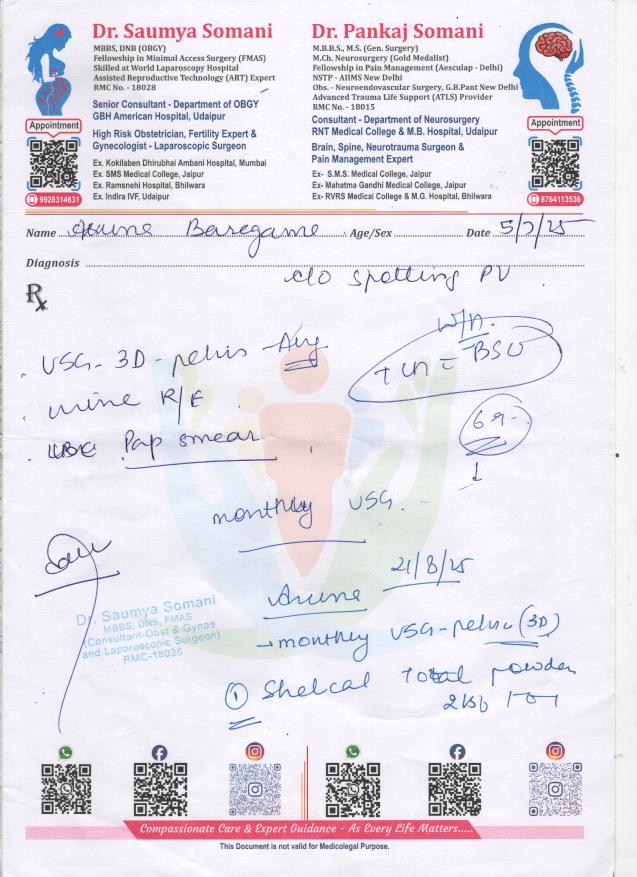 Dr. Saumya Somani
MBBS, DNB (OBGY)
Fellowship in Minimal Access Surgery (FMAS)
Skilled at World Laparoscopy Hospital
Assisted Reproductive Technology (ART) Expert
RMC No. - 18028
Senior Consultant - Department of OBGY
GBH American Hospital, Udaipur
High Risk Obstetrician, Fertility Expert &
Gynecologist - Laparoscopic Surgeon
Ex. Kokilaben Dhirubhai Ambani Hospital, Mumbai
Ex. SMS Medical College, Jaipur
Ex. Ramsnehi Hospital, Bhilwara
Ex. Indira IVF, Udaipur
Appointment
9928314631
Dr. Pankaj Somani
M.B.B.S., M.S. (Gen. Surgery)
M.Ch. Neurosurgery (Gold Medalist)
Fellowship in Pain Management (Aesculap - Delhi)
NSTP - AIIMS New Delhi
Obs. - Neuroendovascular Surgery, G.B.Pant New Delhi
Advanced Trauma Life Support (ATLS) Provider
RMC No. - 18015
Consultant - Department of Neurosurgery
RNT Medical College & M.B. Hospital, Udaipur
Brain, Spine, Neurotrauma Surgeon &
Pain Management Expert
Ex- S.M.S. Medical College, Jaipur
Ex- Mahatma Gandhi Medical College, Jaipur
Ex- RVRS Medical College & M.G. Hospital, Bhilwara
Appointment
8764113536
Name Age/Sex Date 5/7/25
Diagnosis
c/o spotting PV
Rx
USG - 3D - pelvis
urine R/E
Pap smear
monthly USG.
21/8/25
Aruna
→ monthly USG-pelvis (3D)
① Shelcal Total powder
Dr. Saumya Somani
MBBS, DNB, FMAS
(Consultant-Obst & Gynae
and Laparoscopic Surgeon)
RMC-18028
Compassionate Care & Expert Guidance - As Every Life Matters.....
This Document is not valid for Medicolegal Purpose.